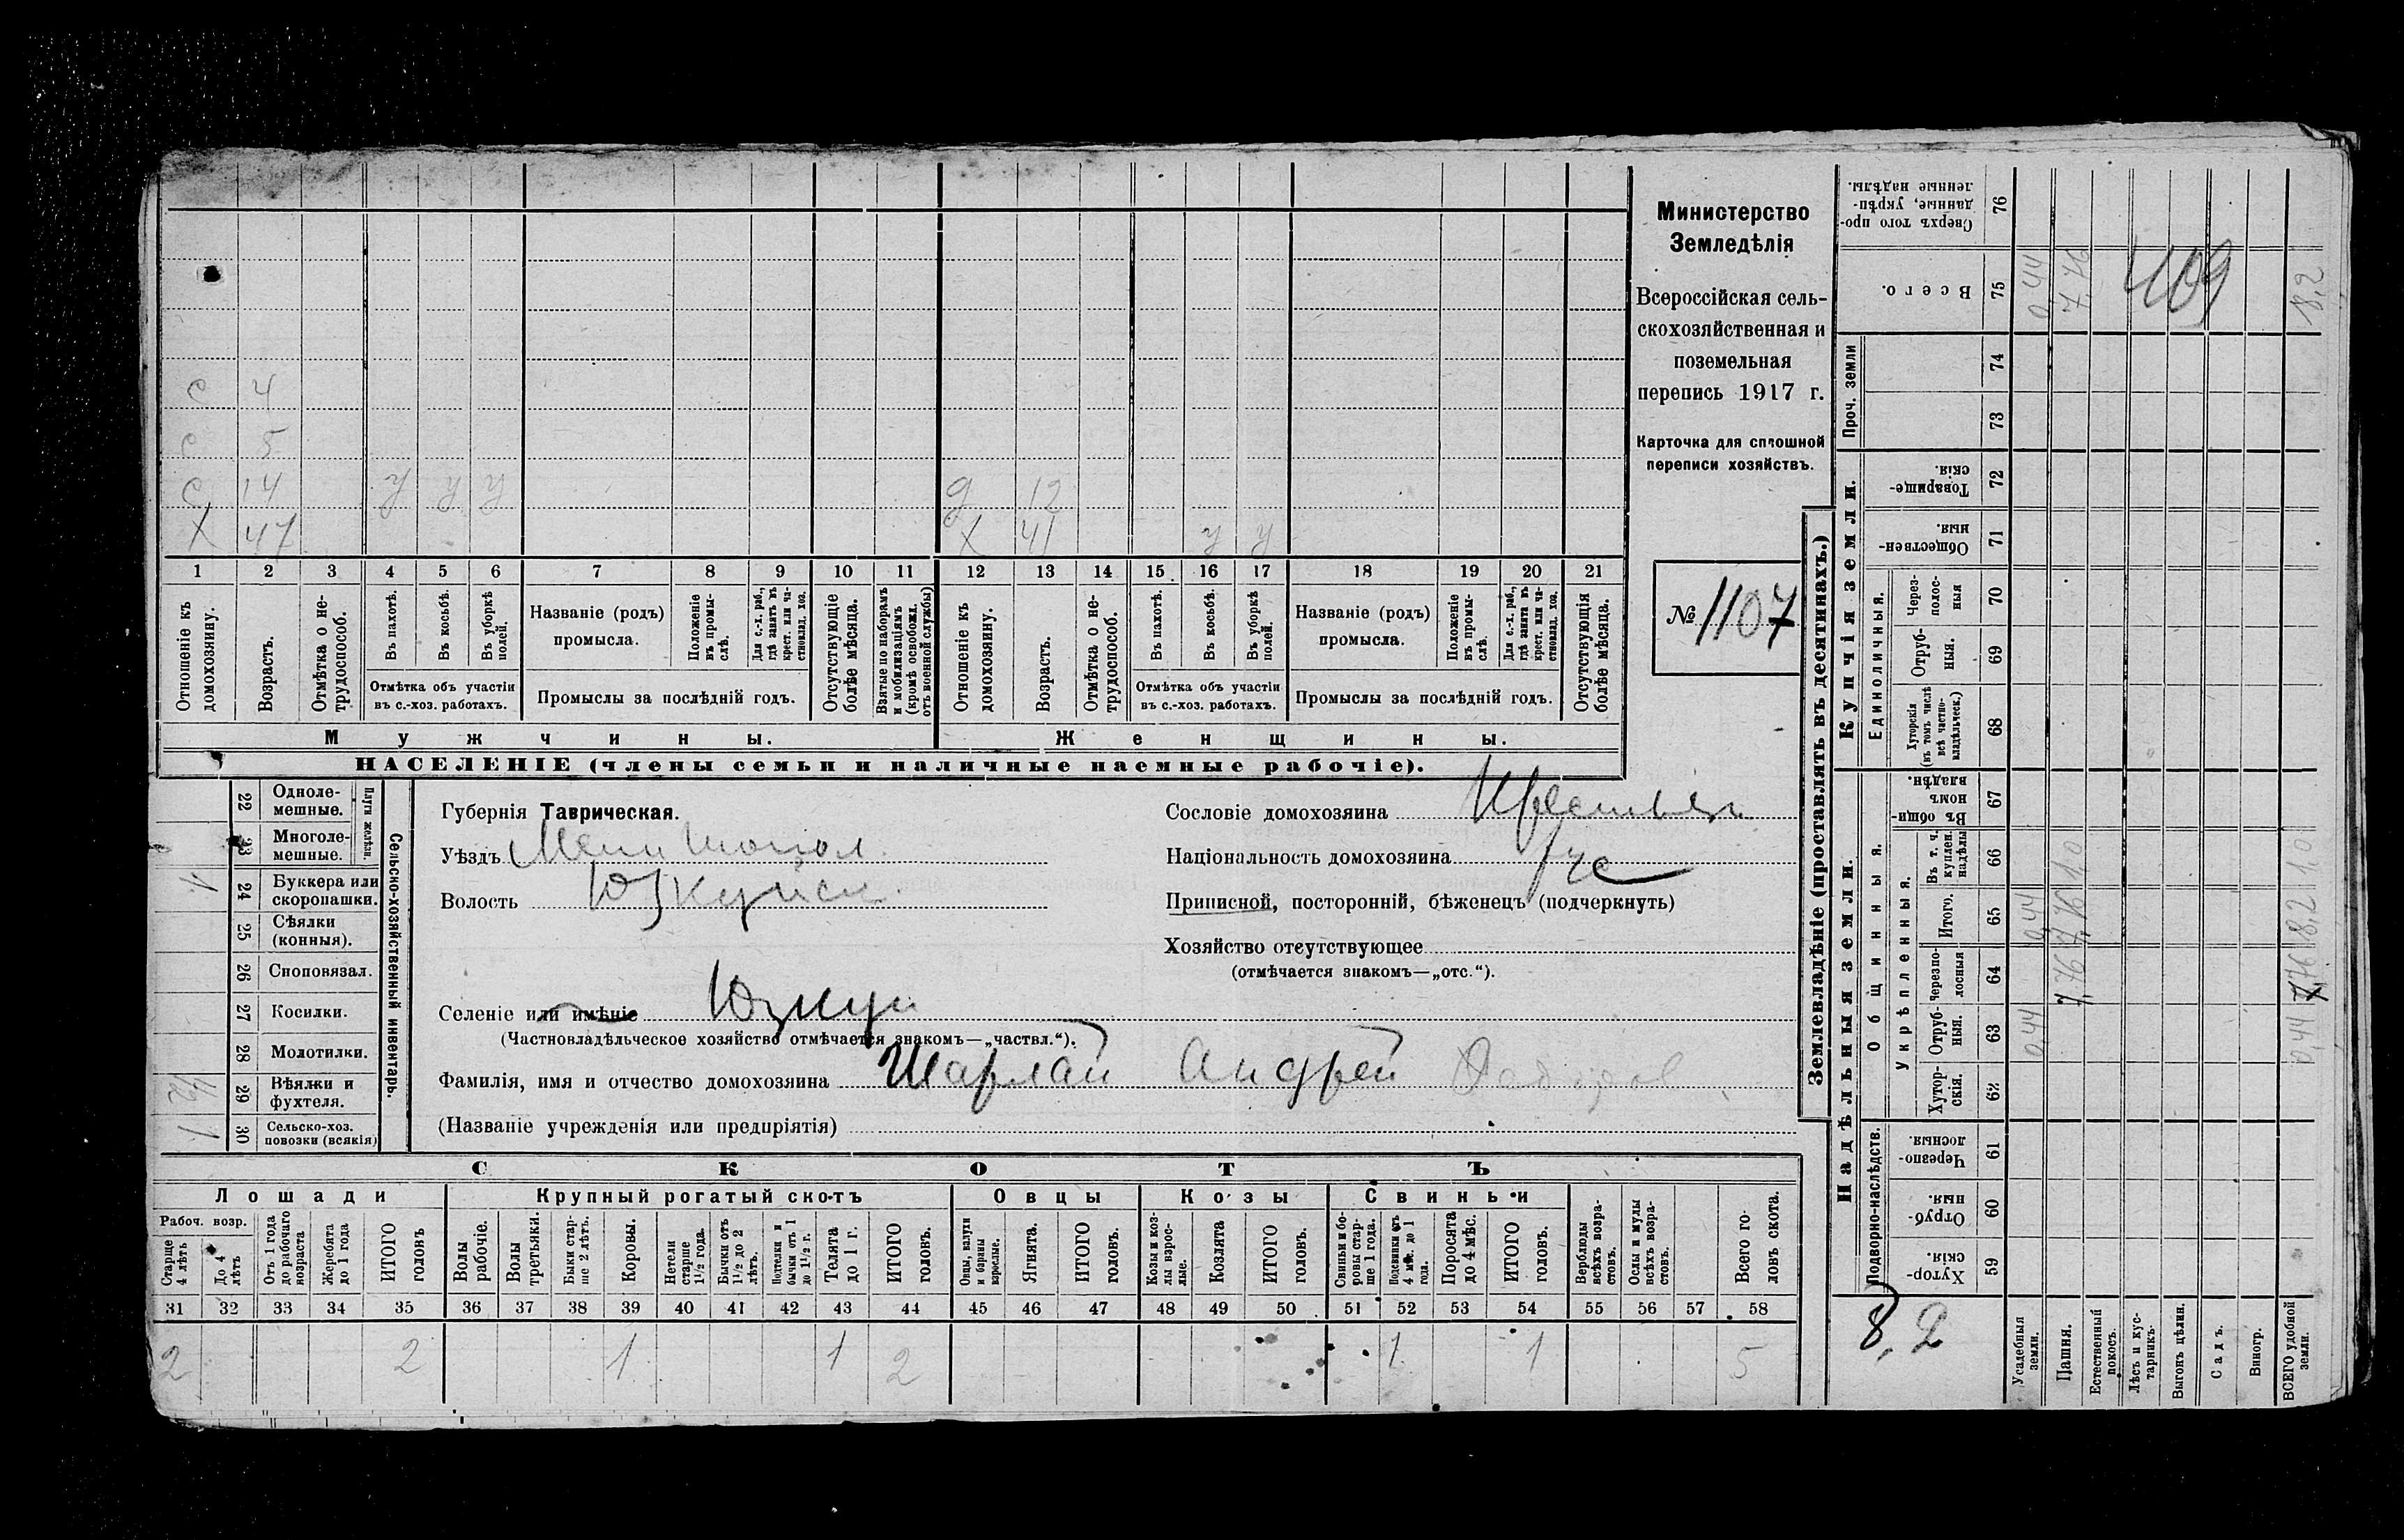 с 4
с 5
с 14 у у у д 12
х 47 х 41 у у
1 2 3 4 5 6 7 8 9 10 11 12 13 14 15 16 17 18 19 20 21
Отношеніе къ домохозяину.
Возрастъ.
Отмѣтка о не-трудоспособ.
Въ пахотѣ.
Въ косьбѣ.
Въ уборкѣ полей.
Отмѣтка объ участіи
въ с.-хоз. работахъ.
Названіе (родъ)
промысла.
Положеніе въ промы-слѣ.
Для с.-х. раб., гдѣ занятъ въ крест. или ча-стновлад. хоз.
Промыслы за послѣдній годъ.
Отсутствующіе болѣе мѣсяца.
Взятые по наборамъ и мобилизаціямъ (кромѣ освобожд. отъ военной службы)
Отношеніе къ домохозяину.
Возрастъ.
Отмѣтка о не-трудоспособ.
Въ пахотѣ.
Въ косьбѣ.
Въ уборкѣ полей.
Отмѣтка объ участіи
въ с.-хоз. работахъ.
Названіе (родъ)
промысла.
Положеніе въ промы-слѣ.
Для с.-х. раб., гдѣ занята въ крест. или ча-стновлад. хоз.
Промыслы за послѣдній годъ.
Отсутствующія болѣе мѣсяца.
Мужчины. Женщины.
НАСЕЛЕНІЕ (члены семьи и наличные наемные рабочіе).
Министерство
Земледѣлія
Всероссійская сель-
скохозяйственная и
поземельная
перепись 1917 г.
Карточка для сплошной
переписи хозяйствъ.
№ 1107
22 Одноле-мешные.
23 Многоле-мешные.
Плуги желѣзн.
1 24 Буккера или скоропашки.
25 Сѣялки (конныя).
26 Сноповязал.
27 Косилки.
28 Молотилки.
1/2 29 Вѣялки и фухтеля.
1 30 Сельско-хоз. повозки (всякія)
Сельско-хозяйственный инвентарь.
Губернія Таврическая.
Уѣздъ Мелитопол.
Волость Юзкуйск.
Селеніе или имѣніе Юзкуи
(Частновладѣльческое хозяйство отмѣчается знакомъ—„частвл.“).
Фамилія, имя и отчество домохозяина Шарлай Андрей
(Названіе учрежденія или предпріятія)
Сословіе домохозяина Крестьян
Національность домохозяина Рус
Приписной, посторонній, бѣженецъ (подчеркнуть)
Хозяйство отсутствующее
(отмѣчается знакомъ—„отс.“).
СКОТЪ
Лошади Крупный рогатый скотъ Овцы Козы Свиньи
Рабоч. возр.
Старше 4 лѣтъ
До 4 лѣтъ
Отъ 1 года до рабочаго возраста
Жеребята до 1 года
ИТОГО головъ
Волы рабочіе.
Волы третьяки.
Быки стар-ше 2 лѣтъ.
Коровы.
Нетели старше 1½ года.
Бычки отъ 1½ до 2 лѣтъ.
Подтелки и бычки отъ 1 до 1½ г.
Телята до 1 г.
ИТОГО головъ.
Овцы, валухи и бараны взрослые.
Ягнята.
ИТОГО головъ.
Козы и коз-лы взрос-лые.
Козлята
ИТОГО головъ.
Свиньи и бо-ровы стар-ше 1 года.
Подсвинки отъ 4 мѣс. до 1 года.
Поросята до 4 мѣс.
ИТОГО головъ.
Верблюды всѣхъ возра-стовъ.
Ослы и мулы всѣхъ возра-стовъ.
Всего го-ловъ скота.
31 32 33 34 35 36 37 38 39 40 41 42 43 44 45 46 47 48 49 50 51 52 53 54 55 56 57 58
2 2 1 1 2 1 1 5
Землевладѣніе (проставлять въ десятинахъ.)
Надѣльныя земли.
Купчія земли.
Проч. земли
Подворно-наслѣдств.
Общинныя.
Укрѣпленныя.
Единоличныя.
Хутор-скія. 59
Отруб-ныя. 60
Черезпо-лосныя 61
Хутор-скія. 62
Отруб-ныя. 63 0,44 0,44
Черезпо-лосныя 64 7,76 7,76
Итого. 65 0,44 7,76 8,2
Въ т. ч. куплен. надѣлы 66 1,0 1,0
Въ общи-номъ владѣн. 67
Хуторскія (въ томъ числѣ всѣ частно-владѣльческ.) 68
Отруб-ныя. 69
Через-полос-ныя 70
Обществен-ныя. 71
Товарище-скія. 72
73
74
Всего. 75 0,44 7,76 409 8,2
Сверхъ того про-данные, укрѣп-ленные надѣлы. 76
8,2
Усадебныя земли.
Пашня.
Естественный покосъ.
Лѣсъ и кус-тарникъ.
Выгонъ цѣлин.
Садъ.
Виногр.
ВСЕГО удобной земли.